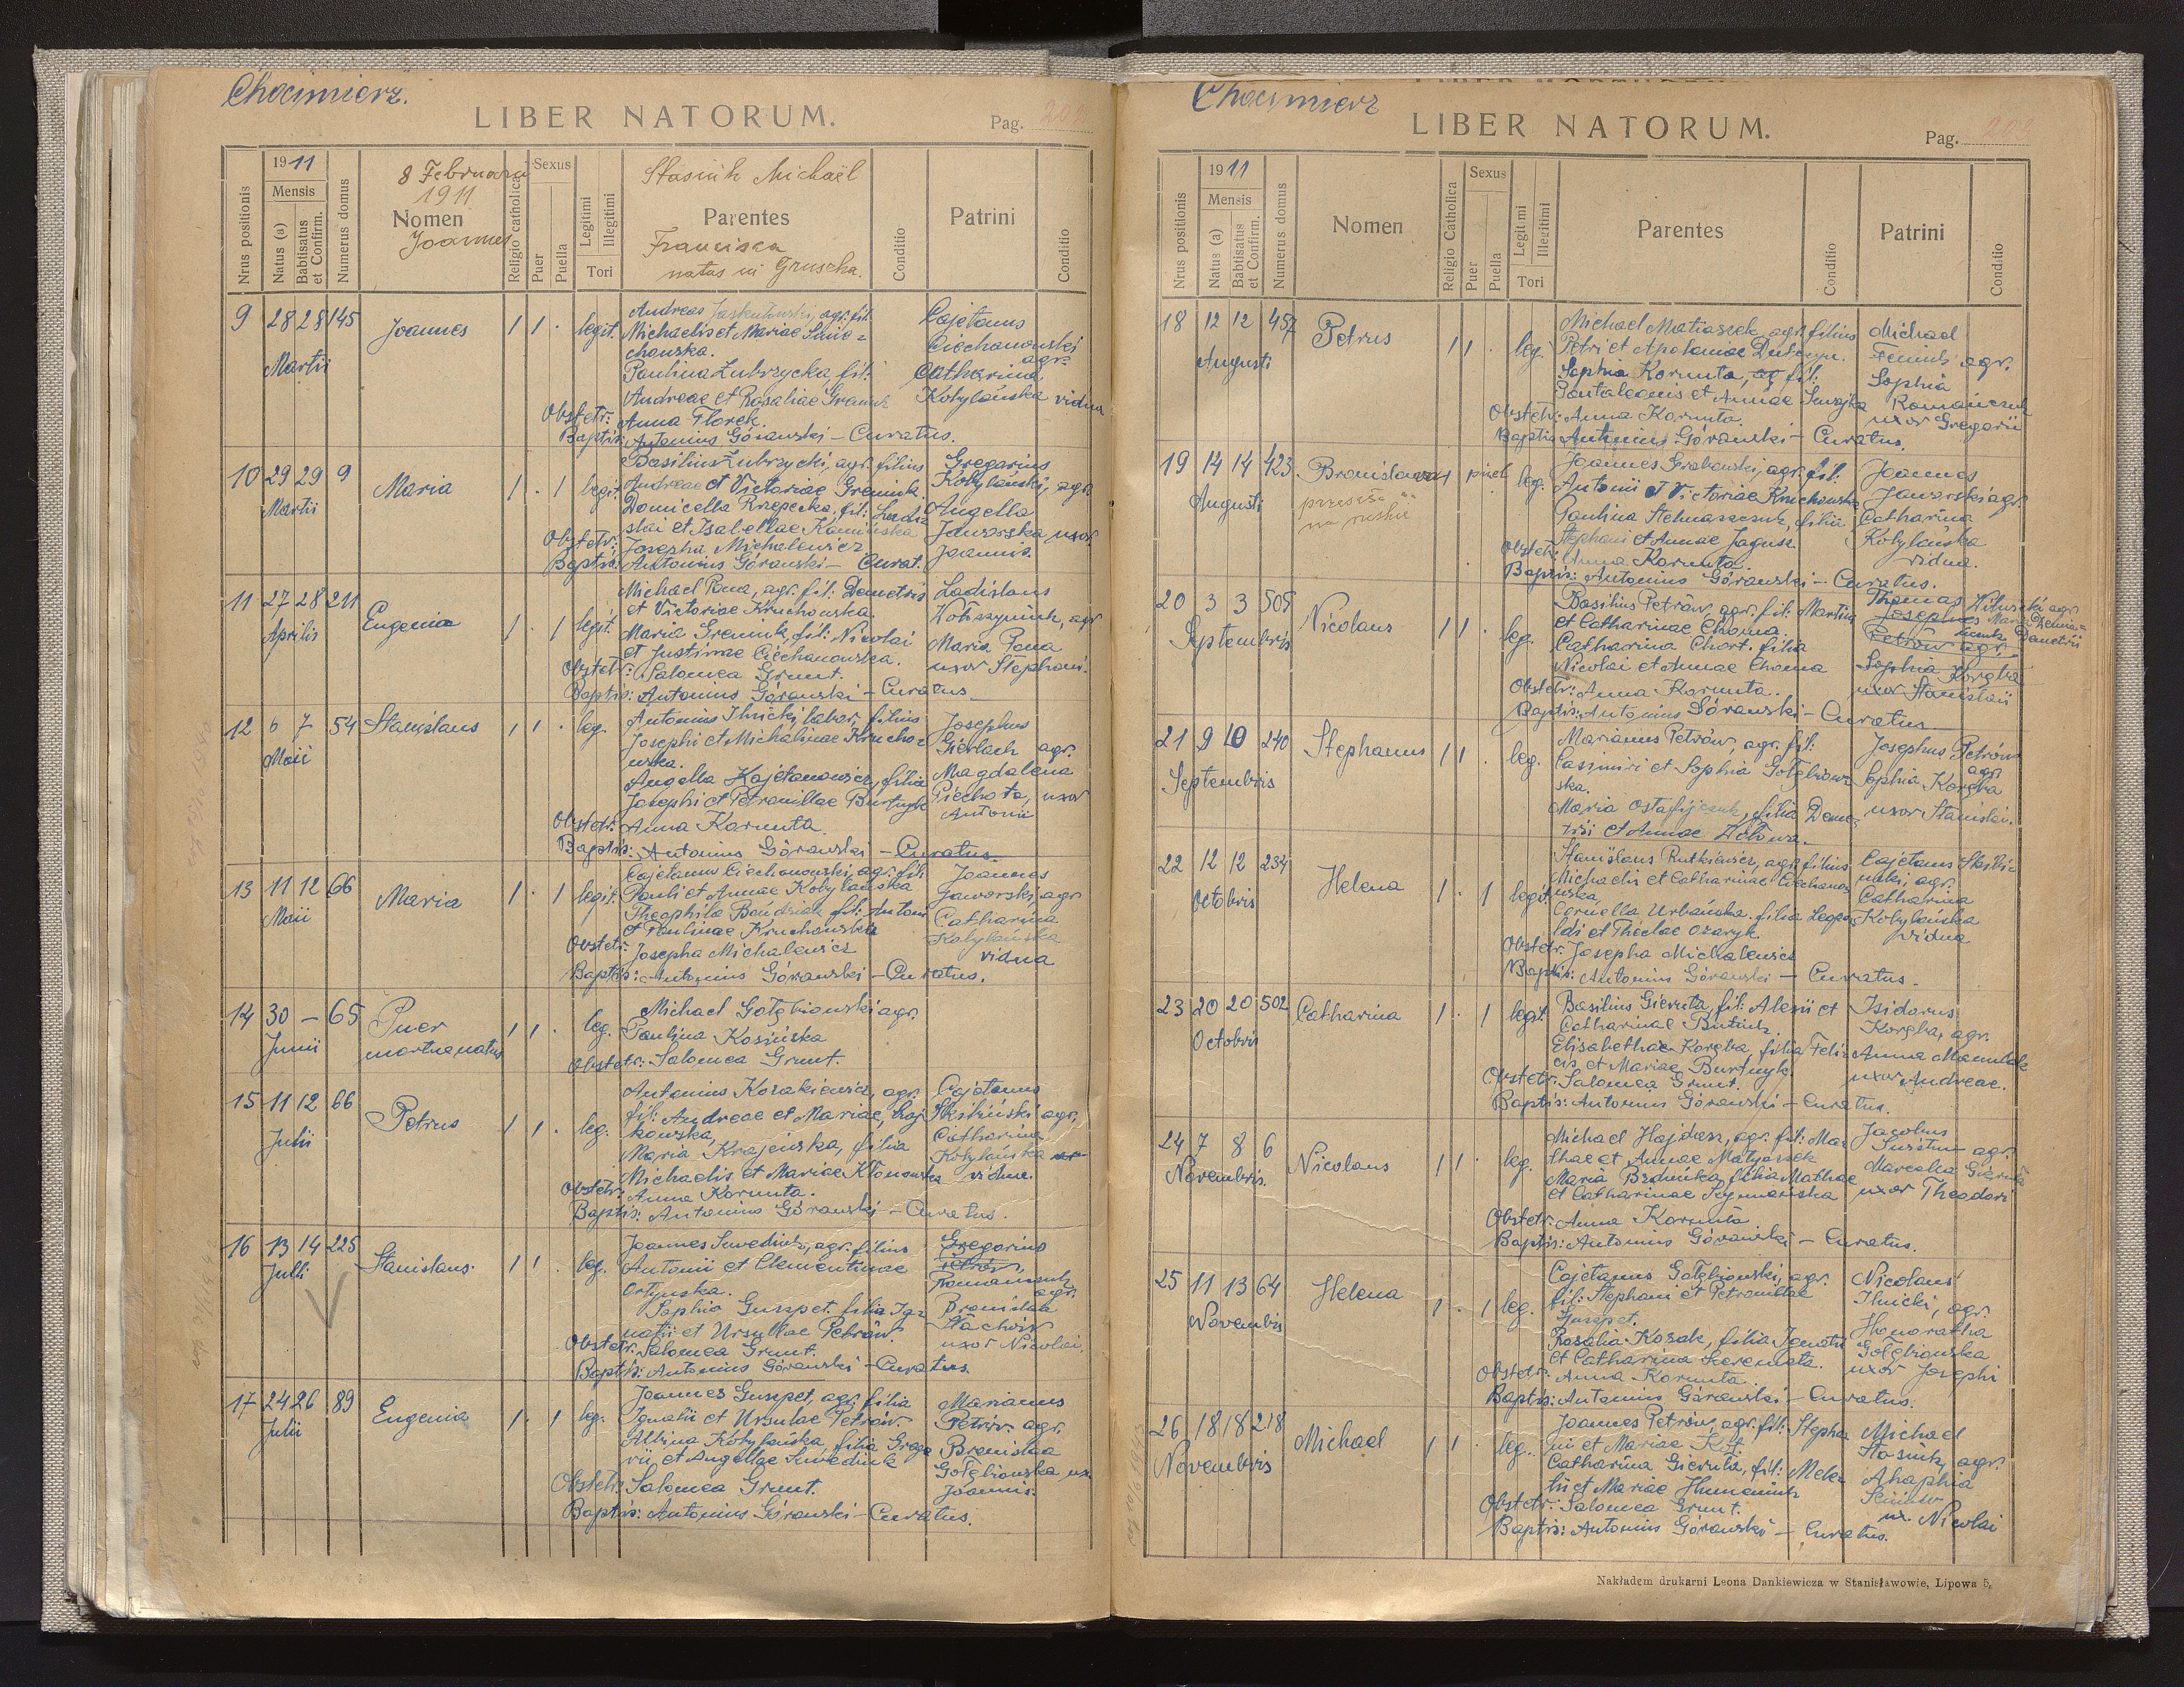 Chocimierz.
LIBER NATORUM.
Pag. 202
Nrus positionis
1911
Mensis
Natus (a)
Babtisatus et Confirm.
Numerus domus
8 Februarii
1911
Nomen
Joannes
Religio catholica
Sexus
Puer
Puella
Legitimi
Illegitimi
Tori
Stasiuk Michaël
Parentes
Francisca
natus in Gruszka.
Conditio
Patrini
Conditio
9 28 28 145 Joannes 1 1 . legit.
Martii
Andreas Jaskulowski, agr. fil.
Michaelis et Mariae
chowska.
Paulina Zubrzycka, fil.
Andreae et Rosaliae Greniuk
Obstetr: Anna Florek.
Baptis: Antonius Górawski – Curatus.
Cajetanus
Ciechanowski
agr.
Catharina
Kobylańska vidua
10 29 29 9 Maria 1 . 1 legit.
Martii
Basilius Zubrzycki, agr. filius
Andreae et Victoriae Greniuk.
Domicella Rzepecka, fil: Ladis
slai et Isabellae Kamińska
Obstetr: Josepha Michalewicz
Baptis: Antonius Górawski – Curat.
Gregorius
Kobylański, agr.
Angella
Jaworska uxor
Joannis.
11 27 28 211 Eugenia 1 . 1 legit.
Aprilis
Michael Pona, agr. fil: Demetrii
et Victoriae Kruchowska.
Maria Greniuk, fil: Nicolai
et Justinae Ciechanowska.
Obstetr: Salomea Grunt.
Baptis: Antonius Górawski – Curatus
Ladislaus
agr
Maria Pona
uxor Stephani.
12 6 7 54 Stanislaus 1 1 . leg.
Maii
Antonius Ilnicki, labor. filius
Josephi et Michalinae Krucho=
wska.
Angella Kajetanowicz, filia
Josephi et Petronillae Burtnyk
Obstetr: Anna Korunta
Baptis: Antonius Górawski – Curatus.
Josephus
Gierlach agr.
Magdalena
Piechota, uxor
Antonii
13 11 12 66 Maria 1 . 1 legit.
Maii
Cajetanus Ciechanowski, agr. fil.
Pauli et Annae Kobylańska
Theophila fil: Antoni
et Paulinae Kruchowska
Obstetr: Josepha Michalewicz
Baptis: Antonius Górawski – Curatus.
Joannes
Jaworski, agr
Catharina
Kobylańska
vidua
14 30 – 65 Puer 1 1 . leg.
Junii mortuenatus
Michael Gołębiowski agr.
Paulina Kosińska
Obstetr: Salomea Grunt.
15 11 12 66 Petrus 1 1 . leg.
Julii
Antonius Kozakiewicz, agr.
fil: Andreae et Mariae
kowska,
Maria Krajewska, filia
Michaelis et Mariae Klonowska
Obstetr: Anna Korunta.
Baptis: Antonius Górawski – Curatus.
Cajetanus
Skibiński agr,
Catharina
Kobylańska
vidua.
16 13 14 225 Stanislaus 1 1 . leg.
Julii
Joannes Swediuk, agr. filius
Antonii et Clementinae
Ortynska.
Sophia Guszpet. filia Ig=
natii et Ursullae Petrów.
Obstetr: Salomea Grunt.
Baptis: Antonius Górawski – Curatus
Gregorius
Petrów,
Romaniuk
agr.
Bronislaa
Stachów
uxor Nicolai.
17 24 26 89 Eugenia 1 . 1 leg.
Julii
Joannes Guszpet, agr. filia
Ignatii et Ursulae Petrów.
Albina Kobylańska, filia Grego
rii et Angellae Swediuk
Obstetr: Salomea Grunt.
Baptis: Antonius Górawski – Curatus.
Marianus
Petrów agr.
Bronislaa
Gołębiowska ux.
Joannis.
Chocimierz
LIBER NATORUM.
Pag. 203
Nrus positionis
1911
Mensis
Natus (a)
Babtisatus et Confirm.
Numerus domus
Nomen
Religio Catholica
Sexus
Puer
Puella
Legitimi
Illegitimi
Tori
Parentes
Conditio
Patrini
Conditio
18 12 12 457 Petrus 1 1 . leg.
Augusti
Michael Matiaszek, agr. filius
Petri et Apoloniae
Sophia Korunta, agr fil:
Pantaleonis et Annae
Obstetr: Anna Korunta.
Baptis: Antonius Górawski – Curatus.
Michael
agr.
Sophia
Romańczuk
uxor Gregorii
19 14 14 423 Bronislawa 1 puel leg.
Augusti
przeszła
na ruskie
Joannes Grabowski, agr. fil:
Antonii et Victoriae Kruchowska
Paulina Stelmaszczuk, filia
Stephani et Annae Jagusz.
Obstetr: Anna Korunta.
Baptis: Antonius Górawski – Curatus.
Joannes
Jaworski agr.
Catharina
Kobylańska
vidua.
20 3 3 505 Nicolaus 1 1 . leg.
Septembris
Basilius Petrów, agr. fil: Martin
et Catharinae Choma
Catharina Chort. filia
Nicolai et Annae Choma
Obstetr: Anna Korunta.
Baptis: Antonius Górawski – Curatus
Thomas agr.
Josephus Maria
Petrów agr. Demetrii
Sophia Korgba
uxor Stanislaii
21 9 10 240 Stephanus 1 1 . leg.
Septembris
Marianus Petrów, agr. fil:
Casimiri et Sophia Gołębiow=
ska.
Maria Ostafijczuk, filia Deme=
trii et Annae
Josephus Petrów
agr.
Sophia Korgba
uxor Stanislai.
22 12 12 234 Helena 1 . 1 legit.
Octobris
Stanislaus Rutkiewicz, agr. filius
Michaelis et Catharinae Ciechano=
wska,
Cornella Urbańska. filia Leopo
ldi et Theclae Ozaryk.
Obstetr: Josepha Michalewicz
Baptis: Antonius Górawski – Curatus.
Cajetanus Skibi=
nski, agr.
Catharina
Kobylańska
vidua
23 20 20 502 Catharina 1 . 1 legit.
Octobris
Basilius Gieruta, fil: Alexii et
Catharinae
Elisabethae Korgba, filia Feli=
cis, et Mariae Burtnyk.
Obstetr: Salomea Grunt.
Baptis: Antonius Górawski – Curatus.
Isidorus
Korgba, agr.
Anna
uxor Andreae.
24 7 8 6 Nicolaus 1 1 . leg.
Novembris.
Michael Hajdasz, agr. fil: Ma=
thae et Annae Matyaszek
Maria filia Mathae
et Catharinae Szymańska
Obstetr: Anna Korunta
Baptis: Antonius Górawski – Curatus.
Jacobus
agr.
Marcella Gieruta
uxor Theodori
25 11 13 64 Helena 1 . 1 leg.
Novembris
Cajetanus Gołębiowski, agr.
fil: Stephani et Petronillae
Guszpet.
Rosalia Kozak, filia Ignatii
et Catharina Szeremeta.
Obstetr: Anna Korunta
Baptis: Antonius Górawski – Curatus.
Nicolaus
Ilnicki, agr.
Honoratha
Gołębiowska
uxor Josephi
26 18 18 218 Michael 1 1 . leg.
Novembris
Joannes Petrów, agr. fil: Stepha
ni et Mariae Kit.
Catharina Gieruta, fil: Mele=
tii et Mariae Humeniuk
Obstetr: Salomea Grunt.
Baptis: Antonius Górawski – Curatus.
Michael
Stasiuk, agr.
Ahaphia
ux. Nicolai
Nakładem drukarni Leona Dankiewicza w Stanisławowie, Lipowa 5.